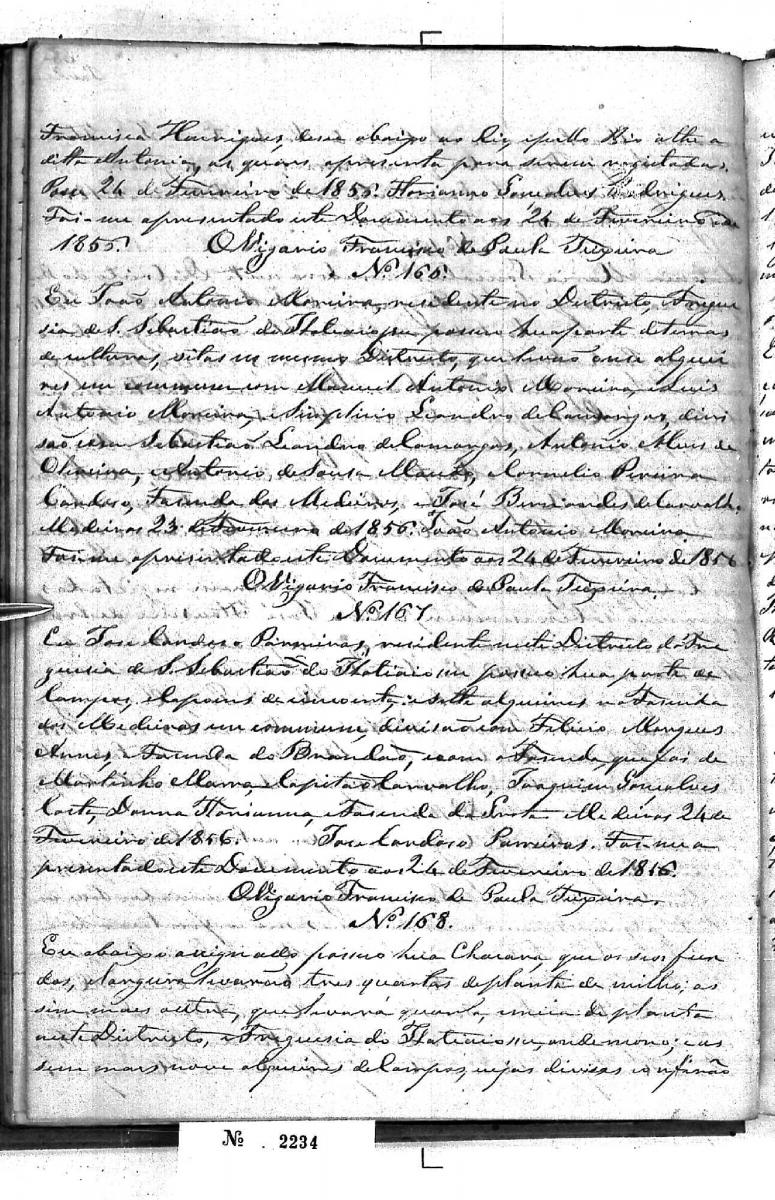 Francisca Henriques, desce abaixo ao Rio, e pello Rio athe a
ditta Antonia, as quaes apresenta para serem registadas.
24 de Fevereiro de 1856. Florianno Gonçalves Rodrigues.
Foi-me apresentado este Documento aos 24 de Fevereiro de
1856. O Vigario Francisco de Paula Teixeira
Nº 166.
Eu João Antonio Moreira, residente no Districto, e Fregue
sia de S. Sebastião do possuo hua parte de terras
de culturas, sitas no mesmo Districto, que levão onze alquei
res em commum com Manoel Antonio Moreira, e Luis
Antonio Moreira, e Simplicio Leandro de Camargos, divi
são com Sebastião Leandro de Camargos, Antonio Alves de
Oliveira, e Antonio de Sousa Macedo, e Cornelio Pereira
Cardoso, Fasenda dos Medeiros, e José Bernardes de Carvalho.
Medeiros 23 de Fevereiro de 1856. João Antonio Moreira
Foi-me apresentado este Documento aos 24 de Fevereiro de 1856
O Vigario Francisco de Paula Teixeira.
Nº 167
Eu Jose Cardoso Parreiras, residente neste Districto da Fre
guesia de S. Sebastião do possuo hua parte de
Campos, e Capoens de cincoenta e sette alqueires na Fasenda
dos Medeiros em commum, divisão com Felicio Marques
Annes, e Fasenda do Brandão, e com a Fasenda que foi de
Martinho Marra, Capitão Carvalho, Joaquim Gonçalves
Costa, Donna Florianna, e Fasenda da Medeiros 24 de
Fevereiro de 1856. Jose Cardoso Parreiras. Foi-me a
presentado este Documento aos 24 de Fevereiro de 1856.
O Vigario Francisco de Paula Teixeira.
Nº 168.
Eu abaixo assignado possuo hua Chacara, que os seos fun
dos, e largura levarão tres quartas de planta de milho; as
sim mais outra, que levará quarta, e meia de planta
neste Districto, e Freguesia do onde moro; e as
sem mais nove alqueires de Campos, cujas divisas confinão
Nº 2234